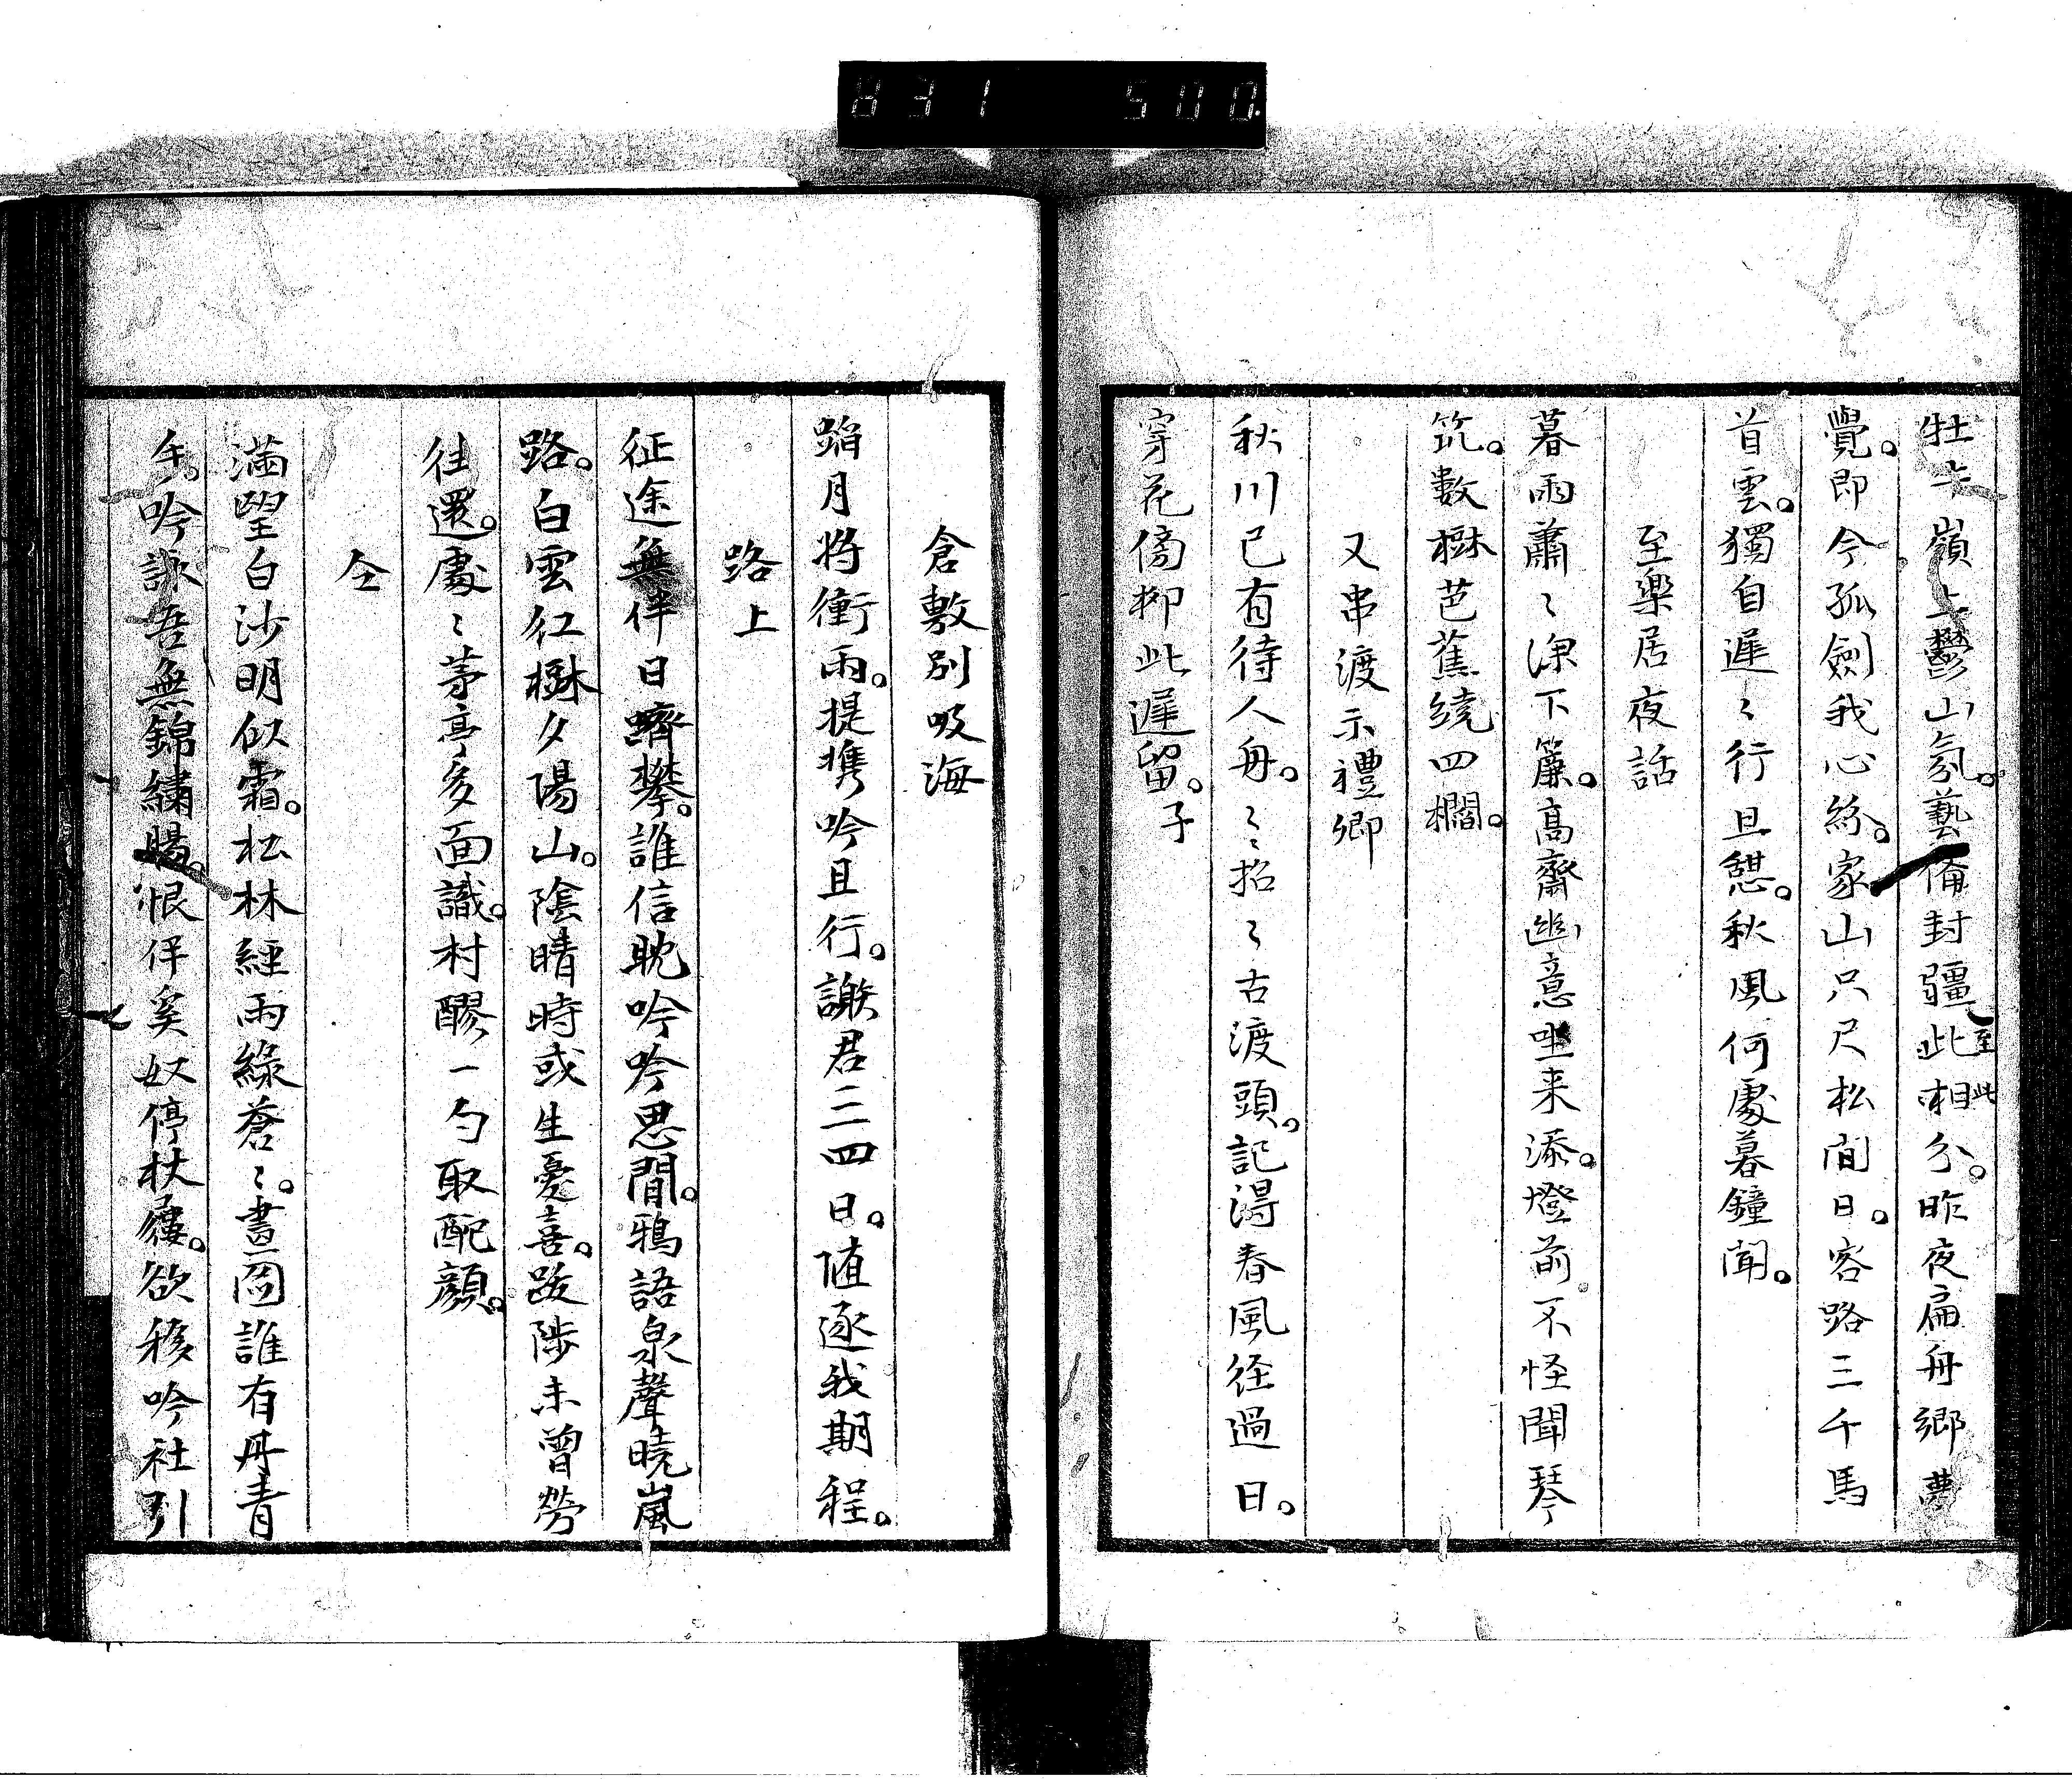 831 500.
牡牛嶺上鬱山氛。藝備封疆此相分。昨夜扁舟郷夢
至此
覺。即今孤劍我心紛。家山只尺松間日。客路三千馬
首雲。獨自遅〻行且憩。秋風何處暮鐘聞。
至樂居夜話
暮雨蕭〻深下簾。高齋幽意坐来添。燈前不怪聞琴
筑。數樹芭蕉繞四櫚。
又串渡示禮卿
秋川已有待人舟。〻招〻古渡頭。記得春風径過日。
穿花傍柳此遅留。子
倉敷別吸海
蹈月将衝雨。提携吟且行。謝君三四日。随逐我期程。
路上
征途無伴日躋攀。誰信耽吟吟思間。鴉語泉聲曉嵐
路。白雲紅樹夕陽山。陰晴時或生憂喜。跋陟未曾勞
往還。處〻茅亭多面識。村醪一勺取配顔。
仝
滿望白沙明似霜。松林經雨綠蒼〻。畫図誰有丹青
手。吟詠吾無錦繍腸。恨伴奚奴停杖屨。欲移吟社引